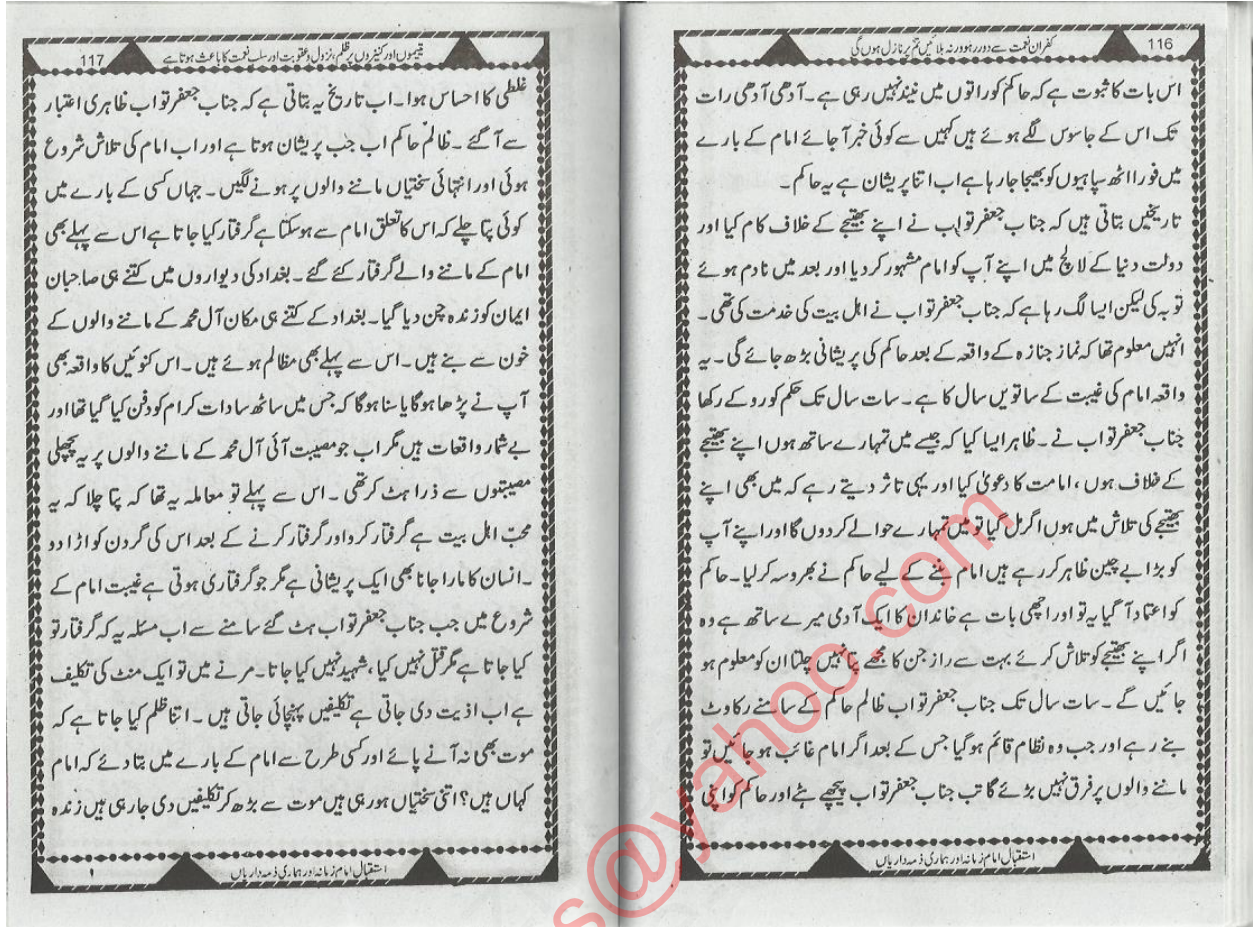 116
کفران نعمت سے دور رہو ورنہ بلائیں تم پر نازل ہوں گی
اس بات کا ثبوت ہے کہ حاکم کو راتوں میں نیند نہیں رہی ہے۔ آدھی آدھی رات
تک اس کے جاسوس لگے ہوئے ہیں کہیں سے کوئی خبر آجائے امام کے بارے
میں فورا اٹھ سپاہیوں کو بھیجا جارہا ہے اب اتنا پریشان ہے یہ حاکم۔
تاریخیں بتاتی ہیں کہ جناب جعفر تواب نے اپنے بھتیجے کے خلاف کام کیا اور
دولت دنیا کے لالچ میں اپنے آپ کو امام مشہور کردیا اور بعد میں نادم ہوئے
توبہ کی لیکن ایسا لگ رہا ہے کہ جناب جعفر تواب نے اہل بیت کی خدمت کی تھی۔
انہیں معلوم تھا کہ نماز جنازہ کے واقعہ کے بعد حاکم کی پریشانی بڑھ جائے گی۔ یہ
واقعہ امام کی غیبت کے ساتویں سال کا ہے۔ سات سال تک حکم کو روکے رکھا
جناب جعفر تواب نے۔ ظاہر ایسا کیا کہ جیسے میں تمہارے ساتھ ہوں اپنے بھتیجے
کے خلاف ہوں، امامت کا دعویٰ کیا اور یہی تاثر دیتے رہے کہ میں بھی اپنے
بھتیجے کی تلاش میں ہوں اگر مل گیا تو میں تمہارے حوالے کردوں گا اور اپنے آپ
کو بڑا بے چین ظاہر کررہے ہیں امام بننے کے لیے حاکم نے بھروسہ کرلیا۔ حاکم
کو اعتماد آگیا یہ تو اور اچھی بات ہے خاندان کا ایک آدمی میرے ساتھ ہے وہ
اگر اپنے بھتیجے کو تلاش کرئے بہت سے راز جن کا مجھے پتا نہیں چلتا ان کو معلوم ہو
جائیں گے۔ سات سال تک جناب جعفر تواب ظالم حاکم کے سامنے رکاوٹ
بنے رہے اور جب وہ نظام قائم ہوگیا جس کے بعد اگر امام غائب ہوجائیں تو
ماننے والوں پر فرق نہیں پڑئے گا تب جناب جعفر تواب پیچھے ہٹے اور حاکم کو اپنی
استقبال امام زمانہ اور ہماری ذمہ داریاں
117
یتیموں اور کنیزوں پر ظلم، نزول و عقوبت اور سلب نعمت کا باعث ہوتا ہے
غلطی کا احساس ہوا۔ اب تاریخ یہ بتاتی ہے کہ جناب جعفر تواب ظاہری اعتبار
سے آگئے۔ ظالم حاکم اب جب پریشان ہوتا ہے اور اب امام کی تلاش شروع
ہوئی اور انتہائی سختیاں ماننے والوں پر ہونے لگیں۔ جہاں کسی کے بارے میں
کوئی پتا چلے کہ اس کا تعلق امام سے ہوسکتا ہے گرفتار کیا جاتا ہے اس سے پہلے بھی
امام کے ماننے والے گرفتار کئے گئے۔ بغداد کی دیواروں میں کتنے ہی صاحبان
ایمان کو زندہ چن دیا گیا۔ بغداد کے کتنے ہی مکان آل محمد کے ماننے والوں کے
خون سے بنے ہیں۔ اس سے پہلے بھی مظالم ہوئے ہیں۔ اس کنوئیں کا واقعہ بھی
آپ نے پڑھا ہوگا یا سنا ہوگا کہ جس میں ساٹھ سادات کرام کو دفن کیا گیا تھا اور
بے شمار واقعات ہیں مگر اب جو مصیبت آئی آل محمد کے ماننے والوں پر یہ پچھلی
مصیبتوں سے ذرا ہٹ کر تھی۔ اس سے پہلے تو معاملہ یہ تھا کہ پتا چلا کہ یہ
محبّ اہل بیت ہے گرفتار کرو اور گرفتار کرنے کے بعد اس کی گردن کو اڑا دو
۔ انسان کا مارا جانا بھی ایک پریشانی ہے مگر جو گرفتاری ہوتی ہے غیبت امام کے
شروع میں جب جناب جعفر تواب ہٹ گئے سامنے سے اب مسئلہ یہ کہ گرفتار تو
کیا جاتا ہے مگر قتل نہیں کیا، شہید نہیں کیا جاتا۔ مرنے میں تو ایک منٹ کی تکلیف
ہے اب اذیت دی جاتی ہے تکلیفیں پہنچائی جاتی ہیں۔ اتنا ظلم کیا جاتا ہے کہ
موت بھی نہ آنے پائے اور کسی طرح سے امام کے بارے میں بتادئے کہ امام
کہاں ہیں؟ اتنی سختیاں ہورہی ہیں موت سے بڑھ کر تکلیفیں دی جارہی ہیں زندہ
استقبال امام زمانہ اور ہماری ذمہ داریاں
۱
s@yahoo.com